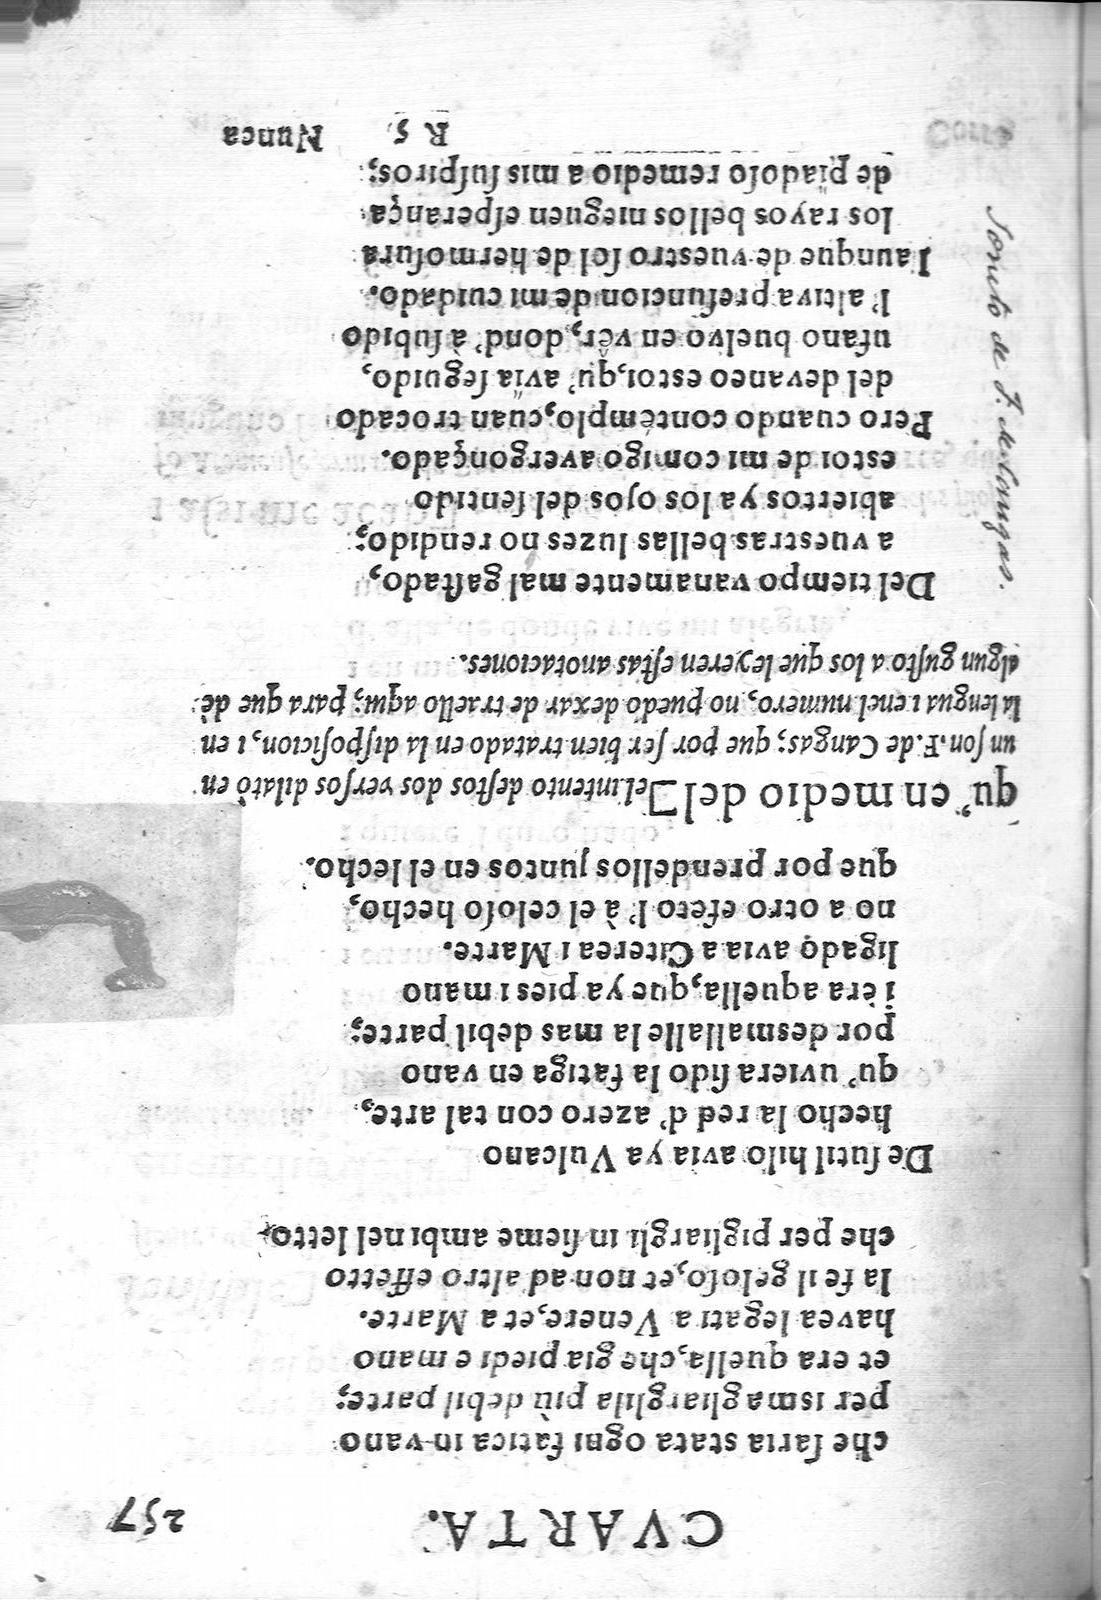 CVARTA. 257
che saria stata ogni fatica in vano
per ismagliargli la più debil parte;
et era quella, che gia piedi e mano
havea legati a Venere, et a Marte.
la fe il geloso, et non ad altro effetto
che per pigliargli in sieme ambi nel letto.
De sutil hilo avia ya Vulcano
hecho la red d' azero con tal arte,
qu' uviera sido la fatiga en vano
por desmallalle la mas debil parte;
i èra aquella, que ya pies i mano
ligado avia a Citerea i Marte.
no a otro efeto l' à el celoso hecho,
que por prendellos juntos en el lecho.
qu' en medio del] el intento destos dos versos dilatò en
un son. F. de Cangas; que por ser bien tratado en la disposicion, i en
la lengua i en el numero, no puedo dexar de traello aqui; para que dè
algun gusto a los que leyeren estas anotaciones.
Del tiempo vanamente mal gastado,
a vuestras bellas luzes no rendido;
abiertos ya los ojos del sentido
estoi de mi comigo avergonçado.
Pero cuando contémplo, cuan trocado
del devaneo estoi, qu' avia seguido,
ufano buelvo en vêr, dond' à subido
l' altiva presuncion de mi cuidado.
I aunque de vuestro sol de hermosura
los rayos bellos nieguen esperança
de piadoso remedio a mis suspiros;
R 5 Nunca
Soneto de F. de Cangas.